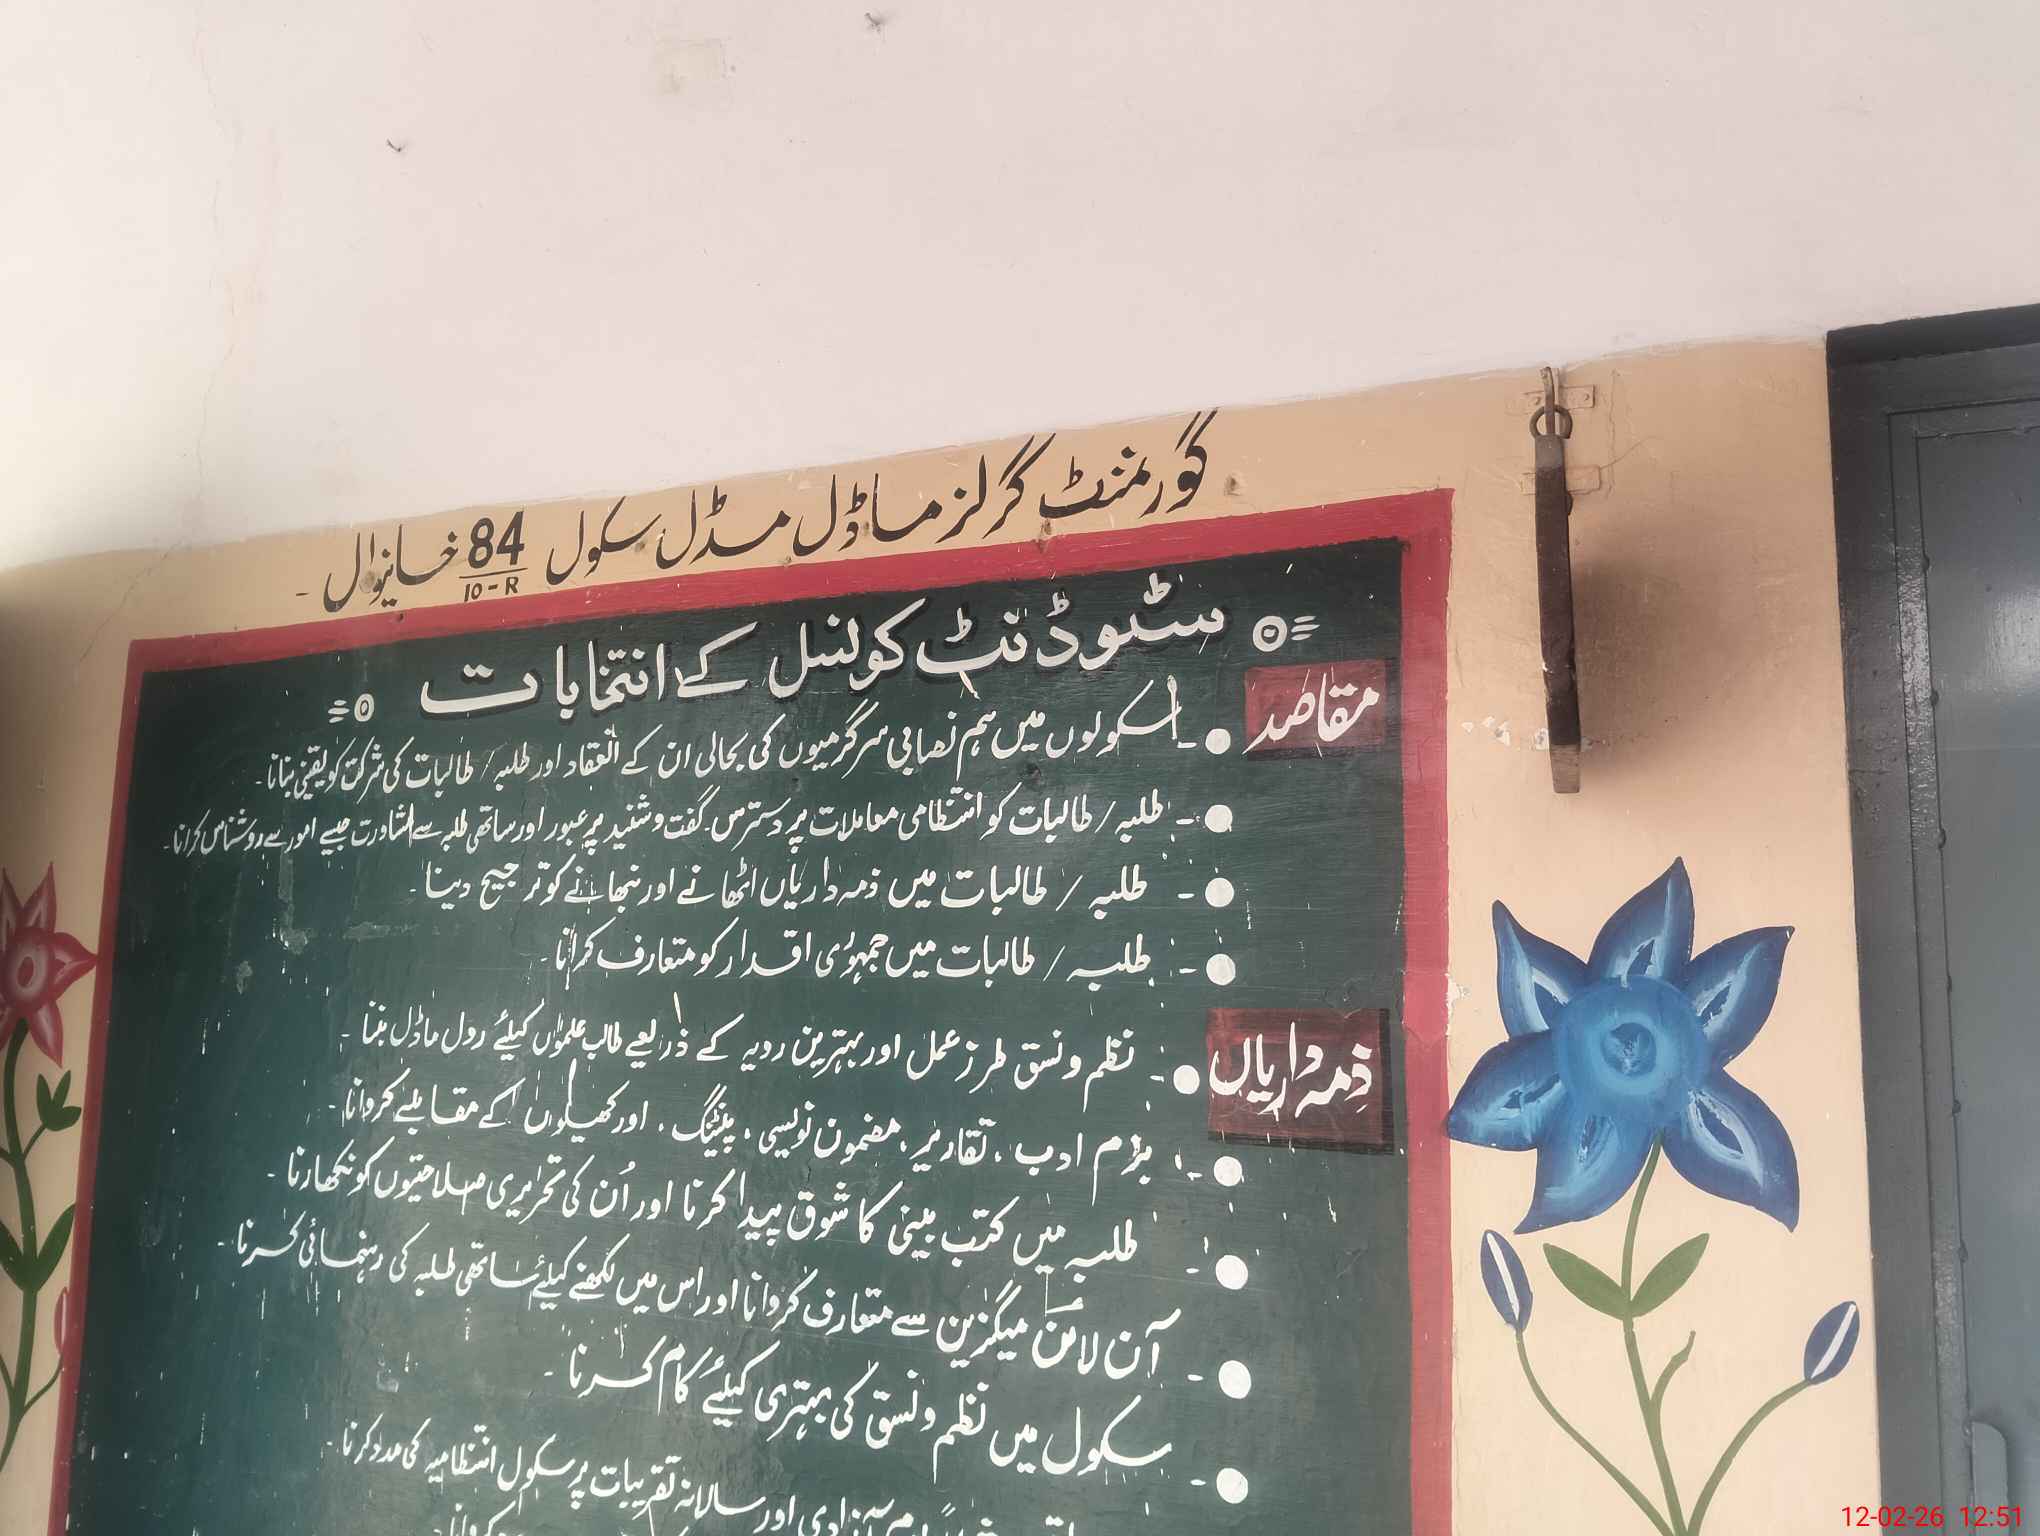 گورنمنٹ گرلز ماڈل مڈل سکول 84/10-R خانیوال ۔
سٹوڈنٹ کونسل کے انتخابات
مقاصد
۔ اسکولوں میں ہم نصابی سرگرمیوں کی بحالی ان کے انعقاد اور طلبہ / طالبات کی شرکت کو یقینی بنانا ۔
۔ طلبہ / طالبات کو انتظامی معاملات پر دسترس ۔ گفت و شنید پر عبور اور ساتھی طلبہ سے مشاورت جیسے امور سے روشناس کرانا ۔
۔ طلبہ / طالبات میں ذمہ داریاں اٹھانے اور نبھانے کو ترجیح دینا ۔
۔ طلبہ / طالبات میں جمہوری اقدار کو متعارف کرانا ۔
ذمہ داریاں
۔ نظم و نسق طرز عمل اور بہترین رویہ کے ذریعے طالب علموں کیلئے رول ماڈل بننا ۔
۔ بزم ادب ، تقاریر ، مضمون نویسی ، پینٹنگ ، اور کھیلوں کے مقابلے کروانا ۔
۔ طلبہ میں کتب بینی کا شوق پیدا کرنا اور اُن کی تحریری صلاحیتوں کو نکھارنا ۔
۔ آن لائن میگزین سے متعارف کروانا اور اس میں لکھنے کیلئے ساتھی طلبہ کی رہنمائی کرنا ۔
۔ سکول میں نظم و نسق کی بہتری کیلئے کام کرنا ۔
آزادی اور سالانہ تقریبات پر سکول انتظامیہ کی مدد کرنا ۔
12-02-26 12:51